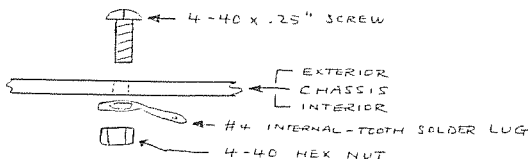 4-40 x .25" SCREW
EXTERIOR
CHASSIS
INTERIOR
#4 INTERNAL-TOOTH SOLDER LUG
4-40 HEX NUT